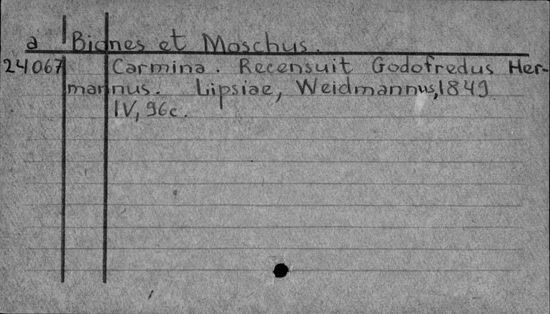 a Biones et Moschus.
24067 Carmina. Recensuit Godofredus Her-
mannus. Lipsiae, Weidmannus, 1849
IV, 96c.